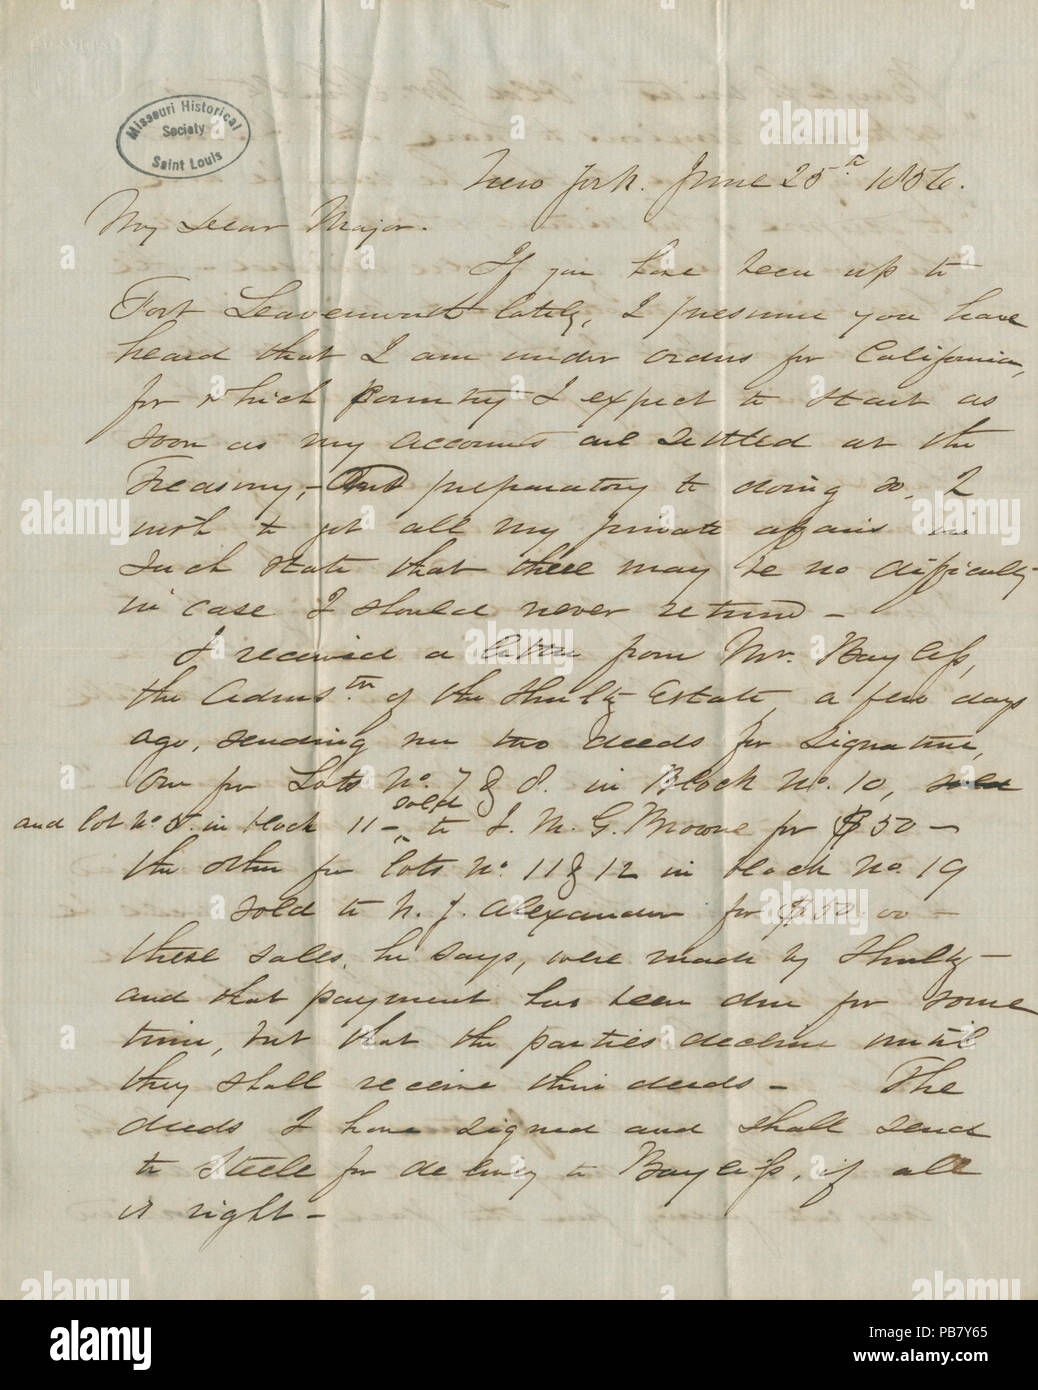 Missouri Historical
Society
Saint Louis
New York. June 25th 1856.
My Dear Major.
If you have been up to
Fort Leavenworth lately, I presume you have
heard that I am under orders for California,
for which country I expect to start as
soon as my accounts are settled at the
Treasury,- And preparatory to doing so, I
wish to get all my private affairs in
such state that there may be no difficulty
in case I should never return -
I received a letter from Mr. Baylifs,
the Admrs of the Shultz Estate, a few days
ago, sending me two deeds for signature,
One for Lots No. 7 & 8. in Block No. 10,
and lot No 5. in block 11 - sold to J. M. G. Browne for $50 -
the other for lots No. 11 & 12 in block No. 19
sold to N. J. Alexander for $50.00 -
these sales, he says, were made by Shultz -
and that payment has been due for some
time, but that the parties decline until
they shall receive their deeds - The
deeds I have signed and shall send
to Steele for delivery to Baylifs, if all
is right -
alamy
Image ID: PB7Y65
www.alamy.com